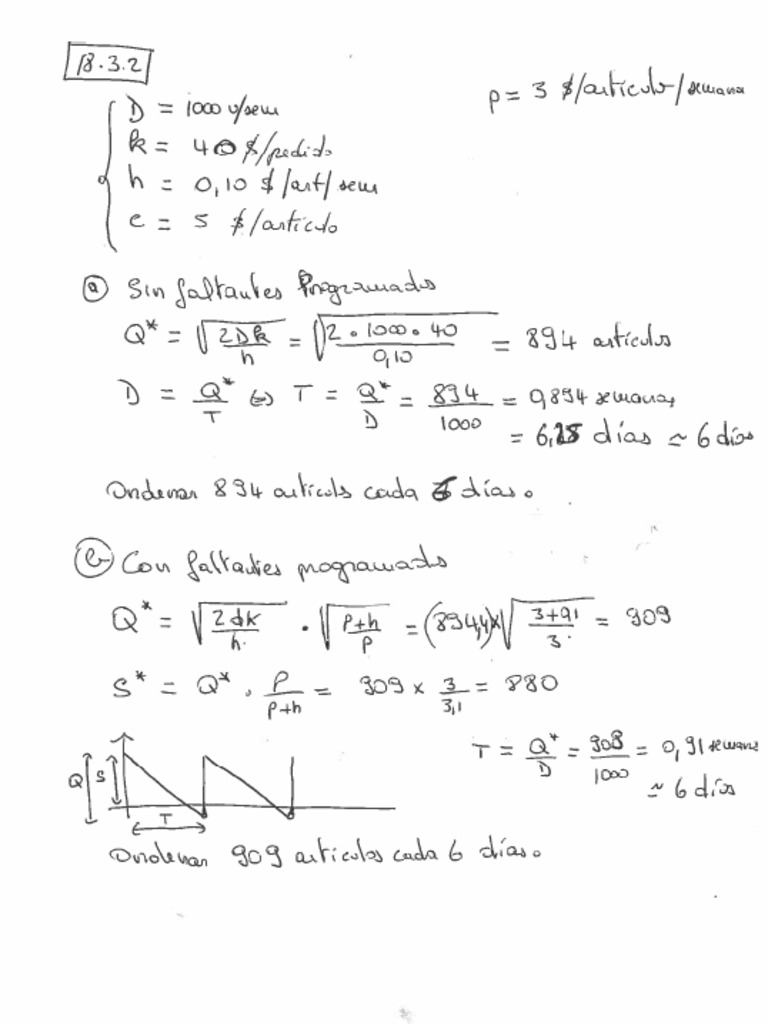 18.3.2
p = 3 $/artículo/semana
D = 1000 u/sem
k = 40 $/pedido
h = 0,10 $/art/sem
c = 5 $/artículo
a) Sin faltantes Programados
Q* = √(2Dk/h) = √(2 · 1000 · 40 / 0,10) = 894 artículos
D = Q*/T ⇔ T = Q*/D = 894/1000 = 0,894 semanas
= 6,25 días ≃ 6 días
Ordenar 894 artículs cada 6 días.
b) Con faltantes programado
Q* = √(2dk/h) · √((p+h)/p) = (894,4) × √((3+0,1)/3) = 909
S* = Q* · p/(p+h) = 909 × 3/3,1 = 880
T = Q*/D = 909/1000 = 0,91 semana
≃ 6 días
Q S T
Ordenar 909 artículos cada 6 días.